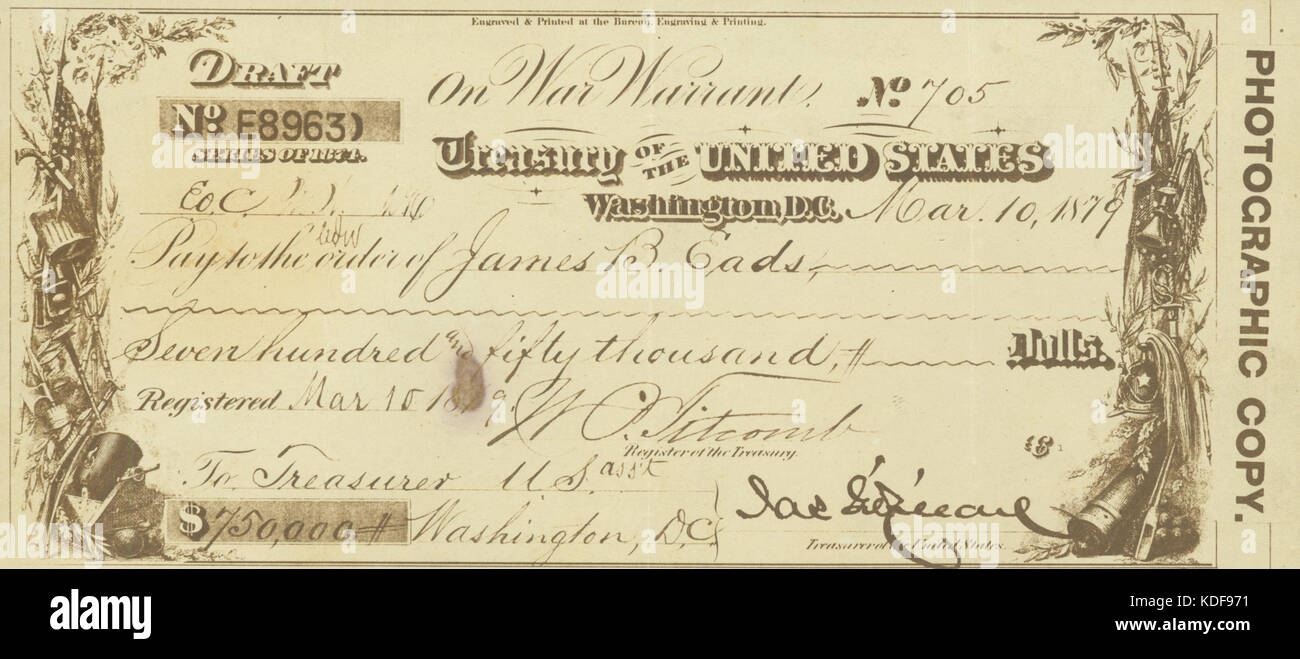 Engraved & Printed at the Bureau, Engraving & Printing.
DRAFT
No. E8963)
SERIES OF 1874.
On War Warrant, No. 705
Treasury OF THE UNITED STATES
Washington, D.C. Mar. 10, 1879
E.o.C.
Pay to the order of James B. Eads,
Seven hundred and fifty thousand, # Dolls.
Registered Mar 10 1879
Register of the Treasury.
18
To Treasurer U.S. asst
$750,000 # Washington, D.C.
Treasurer of the United States.
PHOTOGRAPHIC COPY.
alamy stock photo
KDF971
www.alamy.com